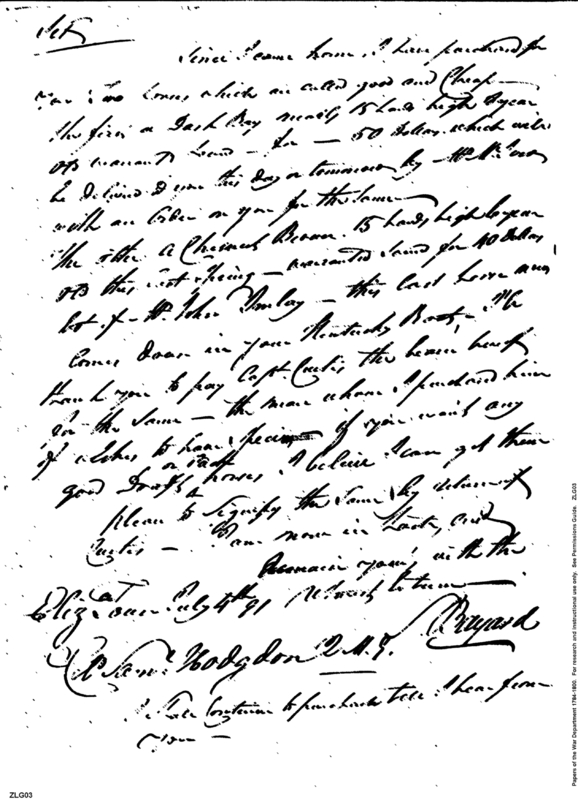 Since I came home I have purchased for
you two horses which are called good and Cheap
the first a Dark Bay nearly 15 hands high years
old warranted sound - for - 50 Dollars which will
be delivered this day or tomorrow by Mr
with an Order on you for the same
the other a Chesnut Brown 15 hands high 6 years
old this last Spring - warranted sound for 40 Dollars
bot of Mr. John - this last horse
comes down in your Kentucky Boat,
you to pay Capt. Curtis the bearer
for the same - the man whom I purchased him
of wishes to have specie if you want any
good Draft horses I believe I can get them
please to signify the same by return of
Curtis - I am now in haste, and
Remain yours with the
Eliz. Town July 4th 91
Bayard
Saml. Hodgdon Q.M.G.
I shall Continue to purchase till I hear from
you -
Papers of the War Department 1784-1800. For research and instructional use only. See Permissions Guide. ZLG03
ZLG03